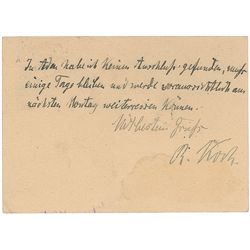 In Aden habe ich keinen Anschluss gefunden, muss
einige Tage bleiben und werde voraussichtlich am
nächsten Montag weiterreisen können.
Mit bestem Gruss
R. Koch